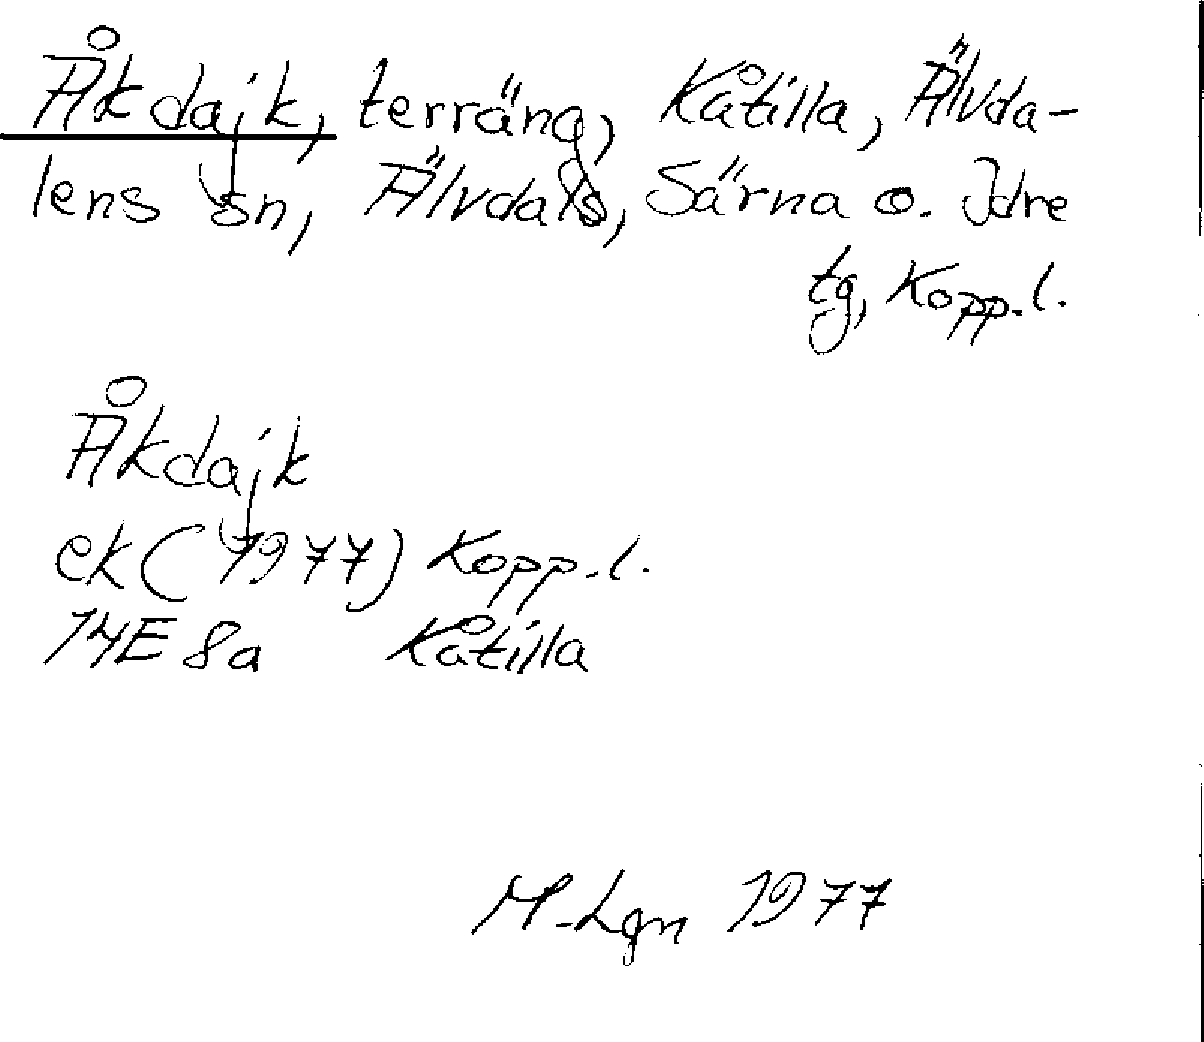 Åkdajk, terräng, Kåtilla, Älvda-
lens sn, Älvdals, Särna o. Idre
tg, Kopp.l.
Åkdajk
ek (1977) Kopp.l.
14E 8a Kåtilla
M-Lgn 1977